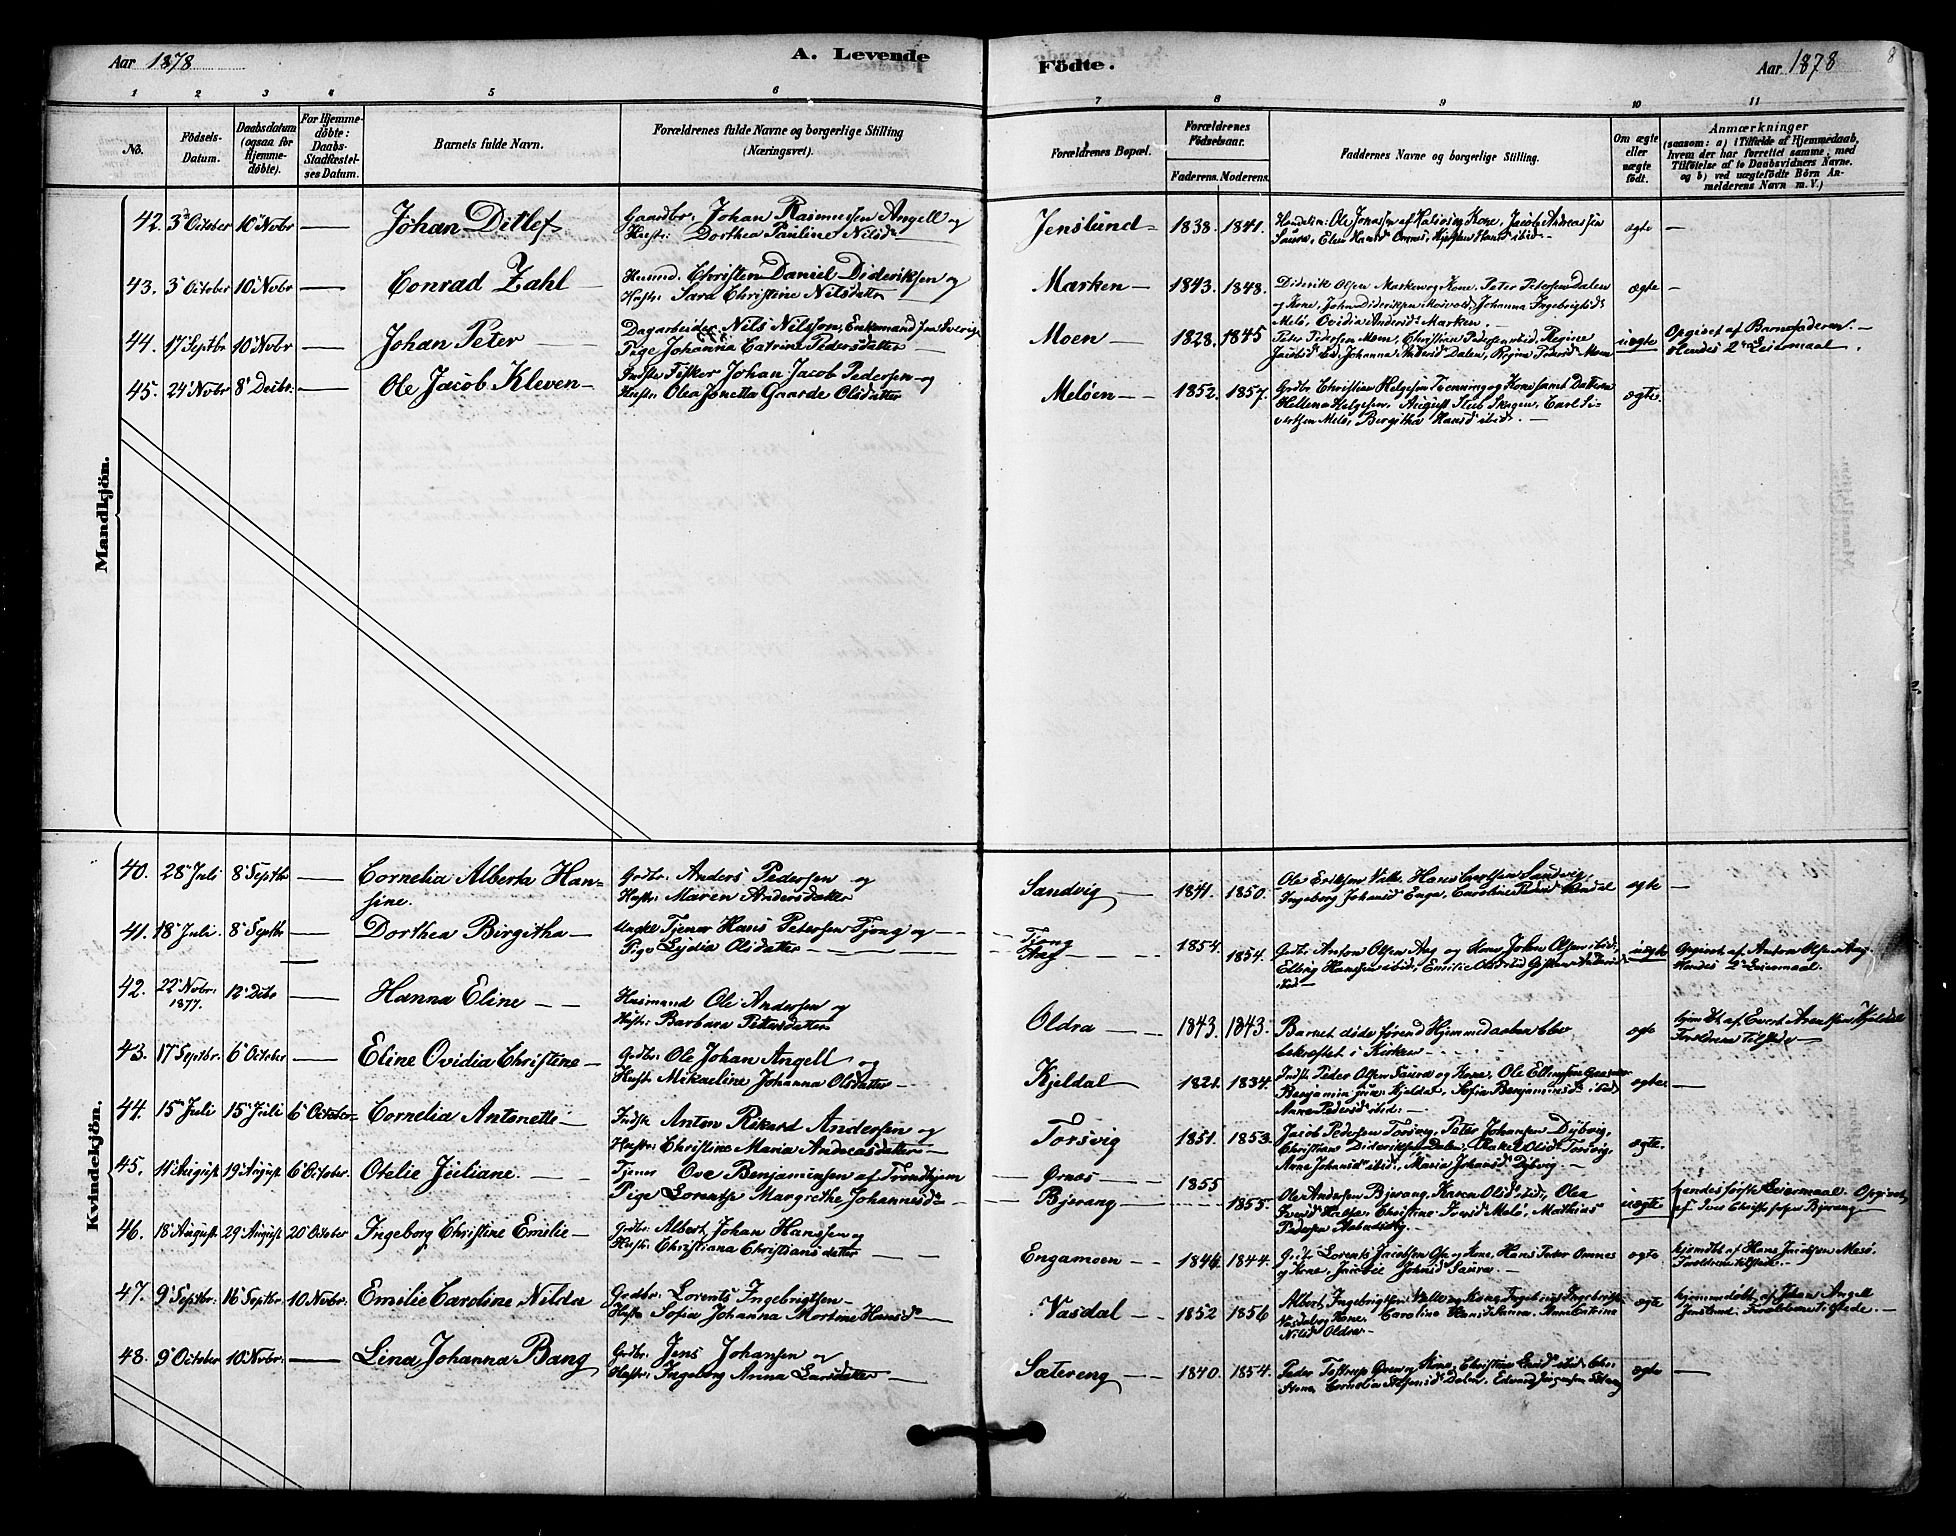 Aar 1878
A. Levende
Födte.
Aar 1878
8
1 2 3 4 5 6 7 8 9 10 11
No.
Födsels-Datum.
Daabsdatum (ogsaa for Hjemmedøbte).
For Hjemmedøbte: Daabs-Stadfæstelses Datum.
Barnets fulde Navn.
Forældrenes fulde Navne og borgerlige Stilling (Næringsvei).
Forældrenes Bopæl.
Forældrenes Födselsaar.
Faderens. Moderens.
Faddernes Navne og borgerlige Stilling.
Om ægte eller uægte födt.
Anmærkninger
(saasom: a) i Tilfælde af Hjemmedaab, hvem der har forrettet samme, med Tilföielse af to Daabsvidners Navne, og b) ved uægtefödte Börn Anmelderens Navn m. V.)
Mandkjön.
42. 3 October 10 Novbr — Johan Ditlef
Gaardbr. Johan Rasmussen Angell og
Hustr: Dorthea Pauline Nilsd —
Jenslund — 1838. 1841.
Ole Jonassen af Kone, Jacob Andreassen
ægte —
43. 3 October 10 Novbr — Conrad Zahl —
Husmd. Christen Daniel Dideriksen og
Hustr: Sara Christine Nilsdatter
Marken — 1843. 1848.
Diderik Olsen Marken og Kone, Peter Pedersen Dalen
og Kone, John Dideriksen Johanna Ingebrigtsd
Melö, Ovidia Andersd: Marken. —
ægte —
44. 17 Septbr 10 Novbr — Johan Peter —
Dagarbeider Nils Nilsson, Enkemand fra Sverige
Pige Johanna Catrine Pedersdatter —
Moen — 1828. 1845
Peter Pedersen Moen, Christian Pedersen ibid, Regine
Johanna Andersd Dalen, Regine Pedersd Moen
uægte
Opgivet af Barnefaderen. —
Hendes 2 Leiermaal.
45. 24 Novbr 8 Decbr. — Ole Jacob Kleven —
Indste Fisker Johan Jacob Pedersen og
Hustr: Olea Jonetta Gaarde Olsdatter
Melöen — 1852. 1857.
Grdbr. Christian Helgesen Tenning og Kone samt Datteren
Hellena Helgesen, August Skagen, Carl Si-
vertsen Melö, Birgitha Hansd ibid. —
ægte.
Kvindekjön.
40. 28 Juli 8 Septbr — Cornelia Alberta Han-
sine.
Grdbr: Anders Pedersen og
Hustr: Maren Andersdatter
Sandvig — 1841. 1850.
Ole Eriksen Valle, Hans Carlsen Sandvig,
Ingeborg Johansd Enga, Caroline
ægte —
41. 18 Juli. 8 Septbr — Dorthea Birgitha —
Ungkl Tjener Hans Pedersen Tjong og —
Pige Lydia Olsdatter —
Tjong
Aag — 1854. 1854.
Grdbr: Anton Olsen Aag og Kone, John Olsen ibid,
Elling Hanssen ibid, Emilie Olsd ibid
ibid —
uægte
Opgivet af Anton Olsen Aag.
Hendes 2 Leiermaal.
42. 22 Novbr. 1877. 12 Decbr — Hanna Eline —
Husmand Ole Andersen og
Hustr: Barbara Petersdatter
Oldra — 1843. 1843.
Barnet döde förend Hjemmedaaben blev
bekræftet i Kirken —
ægte
hjemdbt. af Evert Arentsen Kjeldal
Forældrene tilstede —
43. 17 Septbr. 6 October — Eline Ovidia Christine —
Grdbr: Ole Johan Angell og
Hustr: Mikaeline Johanna Olsdatter —
Kjeldal 1821. 1834.
Indst: Peder Olsen Saura og Kone, Ole Ellingsen
Benjamin Kjeldal, Sofia Benjaminsd: ibid
Anne Pedersd ibid: —
ægte. —
44. 15 Juli 15 Juli 6 October — Cornelia Antonette —
Indst: Anton Rikard Andersen og
Hustr: Christine Maria Andreasdatter —
Torsvig 1851. 1853.
Jacob Pedersen Torsvig, Peter Johansen Dybvig,
Christian Dideriksen Dalen, Rakel Olsd Torsvig,
Anne Johansd ibid., Maria Johansd Dybvig —
ægte.
45. 11 August 19 August 6 October. Otelie Juliane. —
Tjener Ove Benjaminsen af Trondhjem
Pige Lorentse Margrethe Johannesd —
Ørnes —
Bjerang — 1855 1855.
Ole Andersen Bjerang, Karen Olsd ibid, Olea
Iversd Christine Iversd Melö, Mathias
Pedersen
uægte
hendes første Leiermaal. Opgivet
af Iver Christophersen Bjerang —
46. 18 August. 29 August 20 October Ingeborg Christine Emelie —
Grdbr: Albert Johan Hanssen og
Hustr: Christiana Christiansdatter —
Engamoen — 1846. 1844.
Grdbr Lorents Jacobsen og Kone, Hans Peter Omnes
og Kone, Johnsd Saura. —
ægte
hjemdbt. af Hans Jacobsen Mesö.
Forældrene tilstede. —
47. 9 Septbr. 16 Septbr. 10 Novbr. Emilie Caroline Nilda
Grdbr: Lorents Ingebrigtsen —
Hustr: Sofia Johanna Mortine Hansd —
Vasdal — 1852 1856
Albert Ingebrigtsen Valle og Kone, Ingebrigt Ingebrigtsen
Vasdal og Kone, Caroline Hansd Saura,
Nilsd Oldra —
ægte
hjemmedöbt af Johan Angell
Jenslund. Forældrene tilstede. —
48. 9 October 10 Novbr. — Lina Johanna Bang
Grdbr: Jens Johansen og
Hustr: Ingeborg Anna Larsdatter —
Sætereng — 1840. 1854.
Peder Tostrup og Kone, Christine ibid,
Cornelia Dalen, Edvard Jörgensen
ægte —